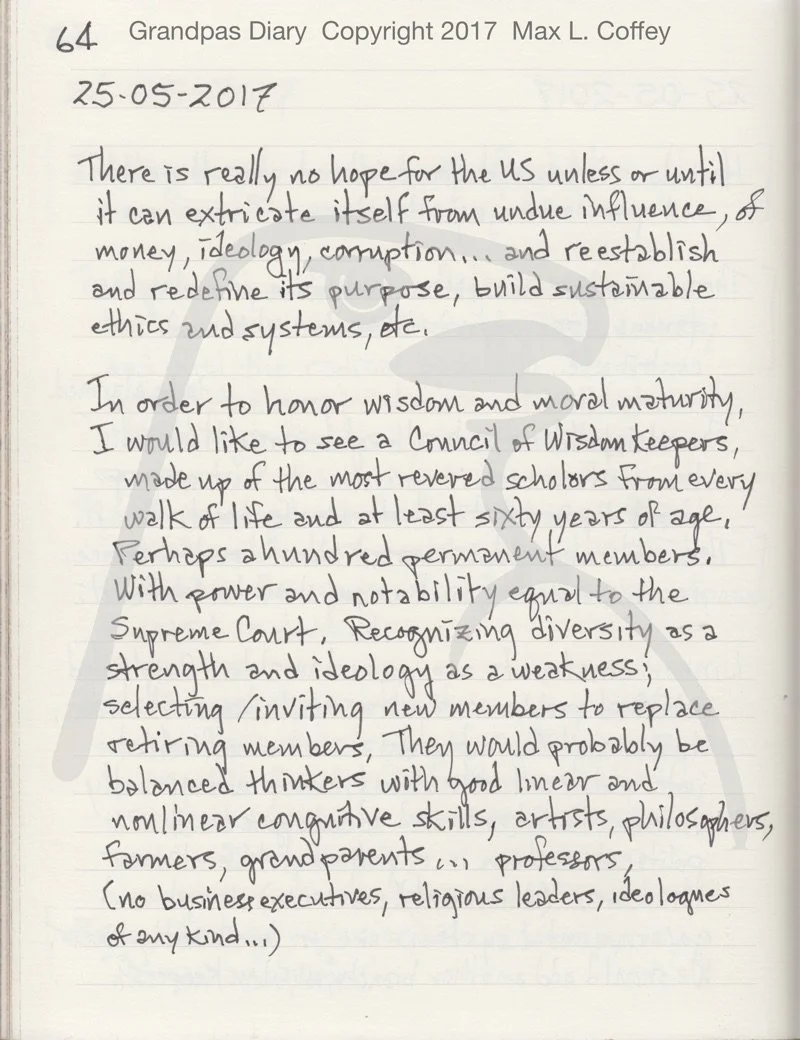 64 Grandpas Diary Copyright 2017 Max L. Coffey
25-05-2017
There is really no hope for the US unless or until
it can extricate itself from undue influence, of
money, ideology, corruption... and reestablish
and redefine its purpose, build sustainable
ethics and systems, etc.
In order to honor wisdom and moral maturity,
I would like to see a Council of Wisdom keepers,
made up of the most revered scholars from every
walk of life and at least sixty years of age.
Perhaps a hundred permanent members.
With power and notability equal to the
Supreme Court. Recognizing diversity as a
strength and ideology as a weakness;
selecting/inviting new members to replace
retiring members, They would probably be
balanced thinkers with good linear and
nonlinear congnitive skills, artists, philosophers,
farmers, grandparents ... professors,
(no business executives, religious leaders, ideologues
of any kind...)